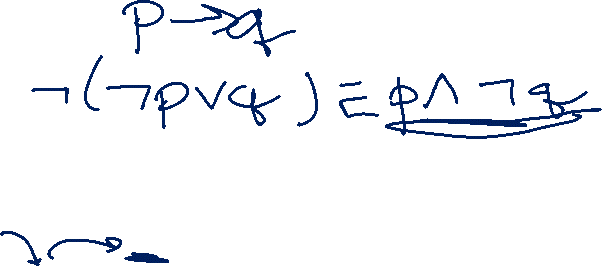 p → q
¬(¬p∨q) ≡ p∧¬q